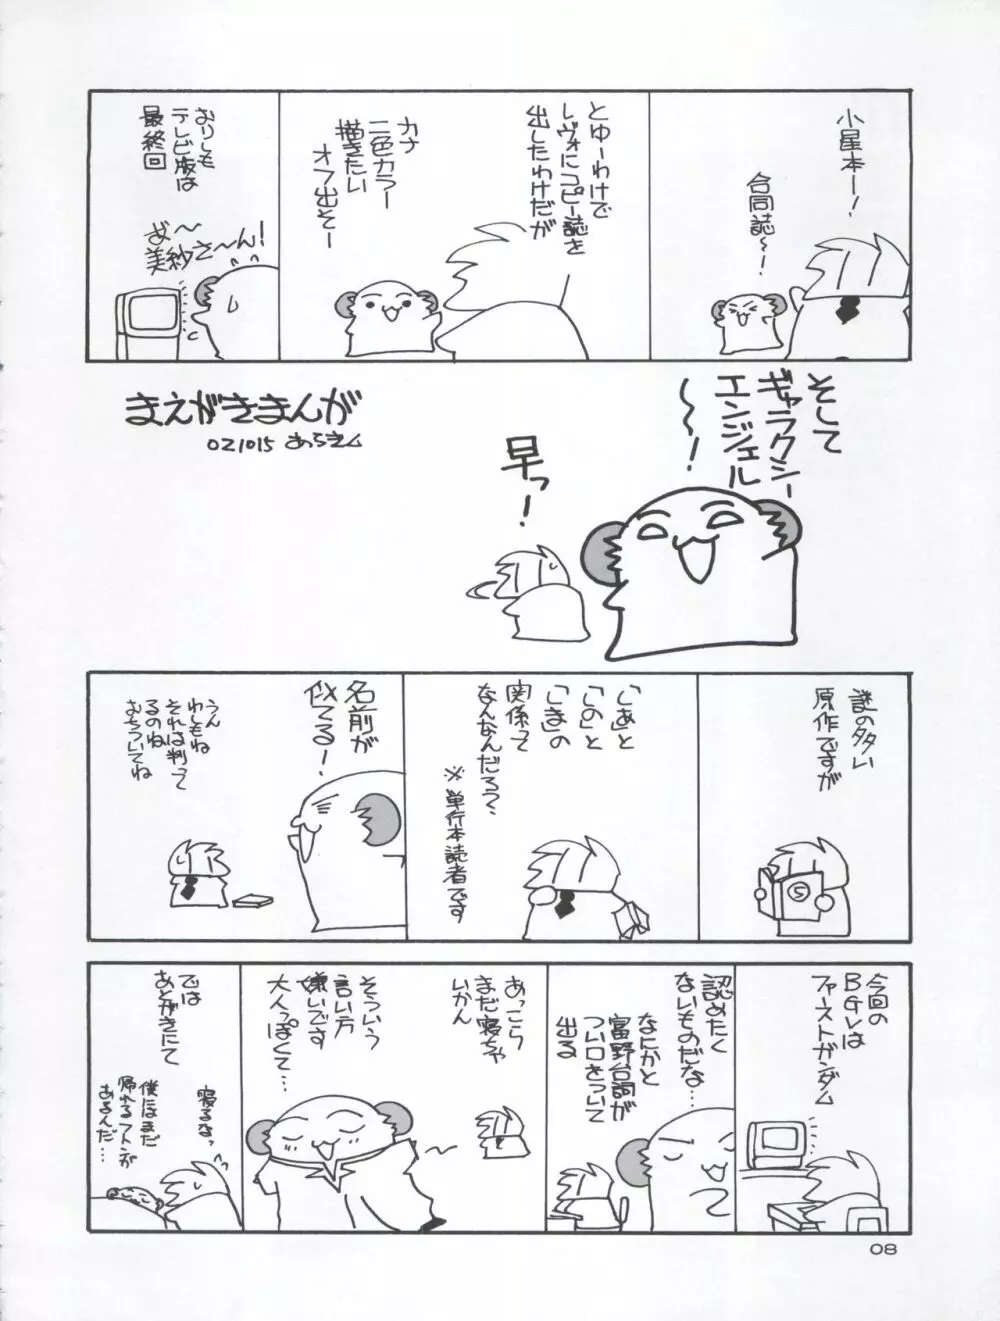 小星本ー!
合同誌〜ー!
とゆーわけで
レヴォにコピー誌を
出したわけだが
カナ
二色カラー
描きたい
オフ出そー
おりしも
テレビ版は
最終回
美紗さ〜ん!
まえがきまんが
021015
そして
ギャラクシー
エンジェル
〜ー!
早っ!
謎の多い
原作ですが
「あ」と
「の」と
「ま」の
関係って
なんなんだろ?
※単行本読者です
名前が
似てる!
うん
わしもね
それは判って
るのね
おちついてね
今回の
BGVは
ファーストガンダム
認めたく
ないものだな…
なにかと
富野台詞が
つい口をついて
出る
あっこら
まだ寝ちゃ
いかん
そういう
言い方
嫌いです
大人っぽくて…
では
あとがきにて
寝るなっ
僕にはまだ
帰れるフトンが
あるんだ…
08